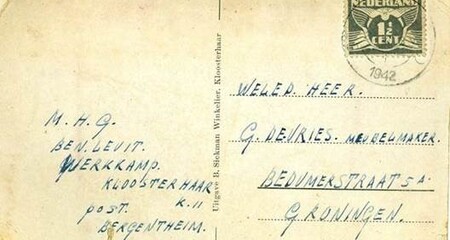 NEDERLAND
1½
CENT
1942
M. H. G.
BEN. LEVIT.
WERKKAMP.
KLOOSTERHAAR
K. 11
POST.
BERGENTHEIM.
Uitgave B. Siekman Winkelier, Kloosterhaar
WELED. HEER.
G. DEVRIES. MEUBELMAKER.
BEDUMERSTRAAT 5A.
GRONINGEN.